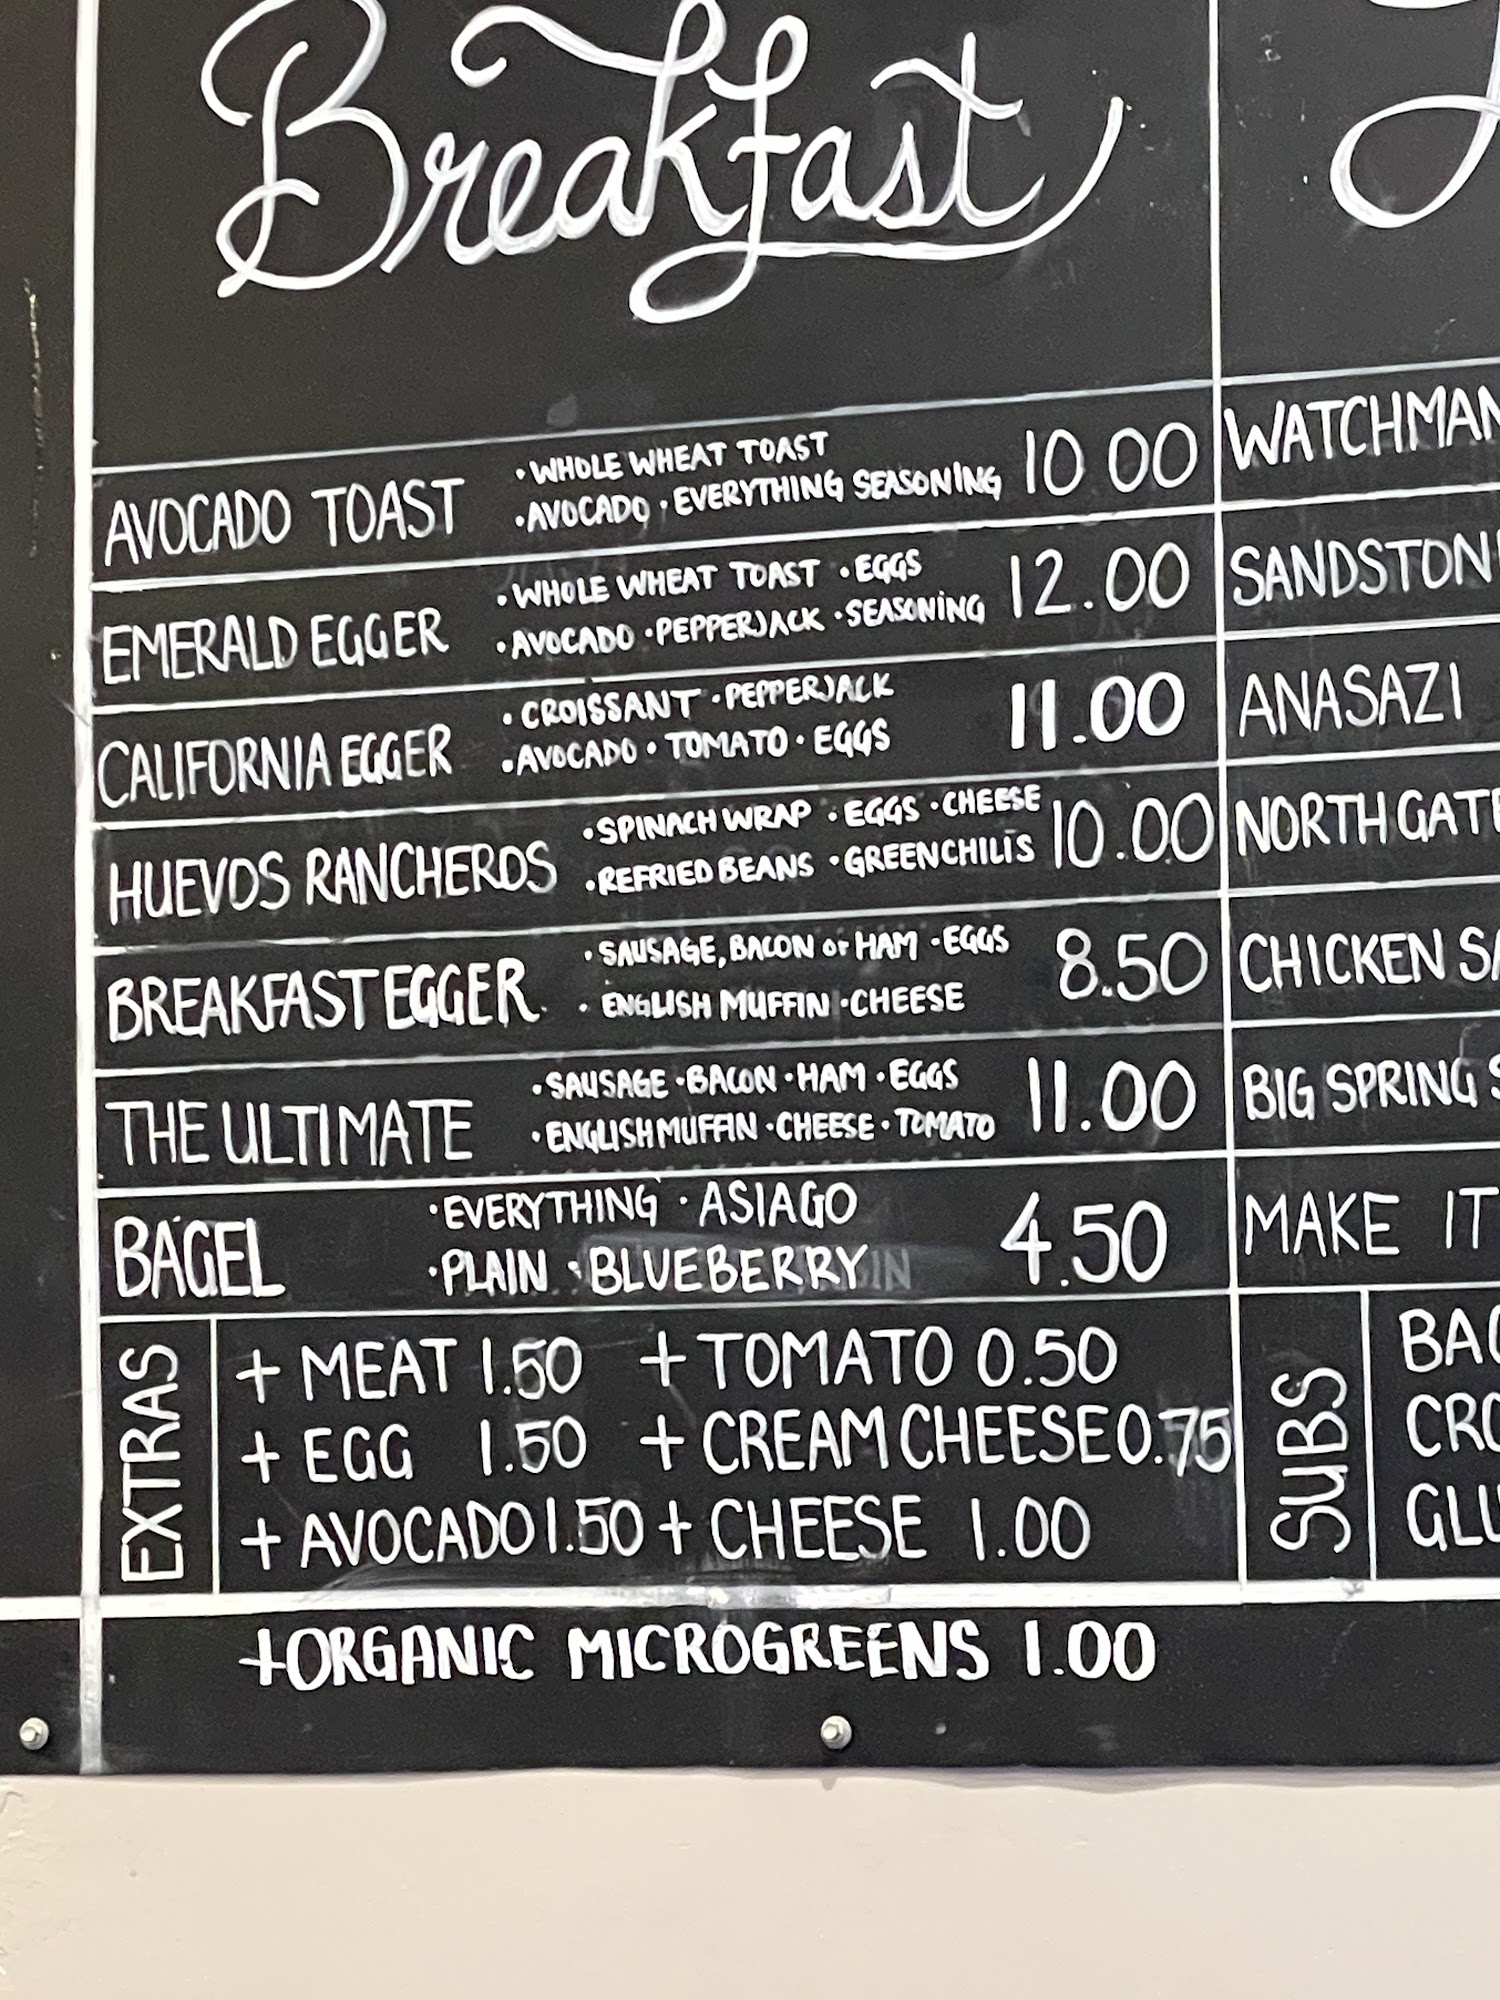 Breakfast
AVOCADO TOAST
• WHOLE WHEAT TOAST
• AVOCADO • EVERYTHING SEASONING
10 00
EMERALD EGGER
• WHOLE WHEAT TOAST • EGGS
• AVOCADO • PEPPERJACK • SEASONING
12.00
CALIFORNIA EGGER
• CROISSANT • PEPPERJACK
• AVOCADO • TOMATO • EGGS
11.00
HUEVOS RANCHEROS
• SPINACH WRAP • EGGS • CHEESE
• REFRIED BEANS • GREEN CHILIS
10.00
BREAKFAST EGGER
• SAUSAGE, BACON or HAM • EGGS
• ENGLISH MUFFIN • CHEESE
8.50
THE ULTIMATE
• SAUSAGE • BACON • HAM • EGGS
• ENGLISH MUFFIN • CHEESE • TOMATO
11.00
BAGEL
• EVERYTHING • ASIAGO
• PLAIN • BLUEBERRY
4.50
EXTRAS
+ MEAT 1.50 + TOMATO 0.50
+ EGG 1.50 + CREAM CHEESE 0.75
+ AVOCADO 1.50 + CHEESE 1.00
+ORGANIC MICROGREENS 1.00
WATCHMAN
SANDSTON
ANASAZI
NORTHGAT
CHICKEN SA
BIG SPRING S
MAKE IT
SUBS
BAG
CRO
GLU